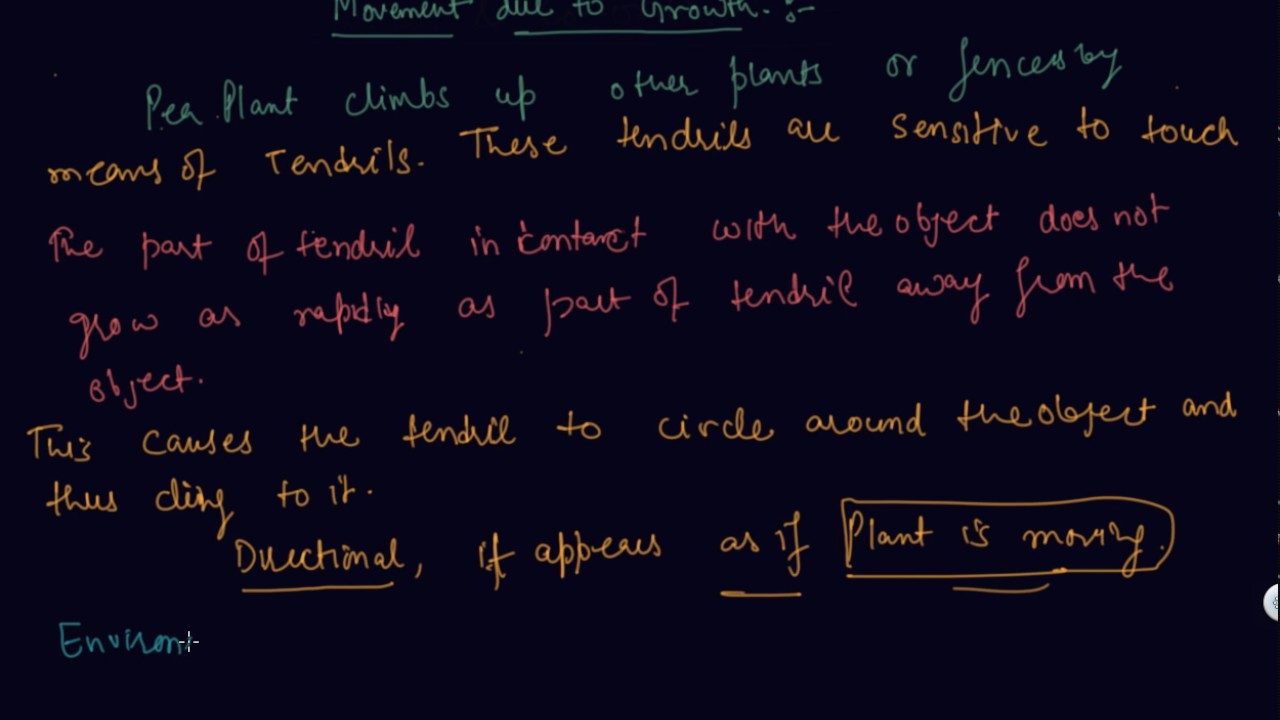 Movement due to Growth. :-
Pea Plant climbs up other plants or fences by
means of Tendrils. These tendrils are sensitive to touch
The part of tendril in contact with the object does not
grow as rapidly as part of tendril away from the
object.
This causes the tendril to circle around the object and
thus cling to it.
Directional, it appears as if Plant is moving.
Environ